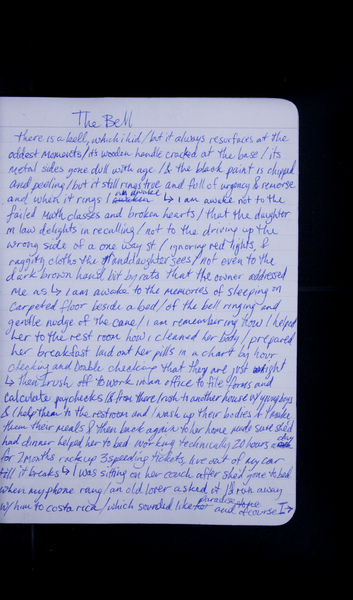 The Bell
there is a bell, which i hid / but it always resurfaces at the
oddest moments / its wooden handle cracked at the base / its
metal sides gone dull with age / & the black paint is chipped
and peeling / but it still rings true and full of urgency & remorse
and when it rings I am awake ↳ i am awake not to the
failed math classes and broken hearts / that the daughter
in law delights in recalling / not to the driving up the
wrong side of a one way st / ignoring red lights, &
raggity cloths the granddaughter sees / not even to the
dark brown hand bit by rats that the owner addressed
me as ↳ i am awake to the memories of sleeping on
carpeted floor beside a bed / of the bell ringing and
gentle nudge of the cane / i am remembering how I helped
her to the rest room how i cleaned her body / prepared
her breakfast laid out her pills in a chart by hour
checking and double checking that they are just right
↳ then I rush off to work in an office to file forms and
calculate paychecks / & from there I rush to another house w/ young boys
& I help them to the restroom and I wash up their bodies & make
them their meals & then back again to her home made sure she'd
had dinner helped her to bed working technically 20 hours a day
for 2 months rack up 3 speeding tickets, live out of my car
till it breaks ↳ I was sitting on her couch after she'd gone to bed
when my phone rang / an old lover asked if I'd run away
w/ him to costa rica / which sounded like paradise and of course I →